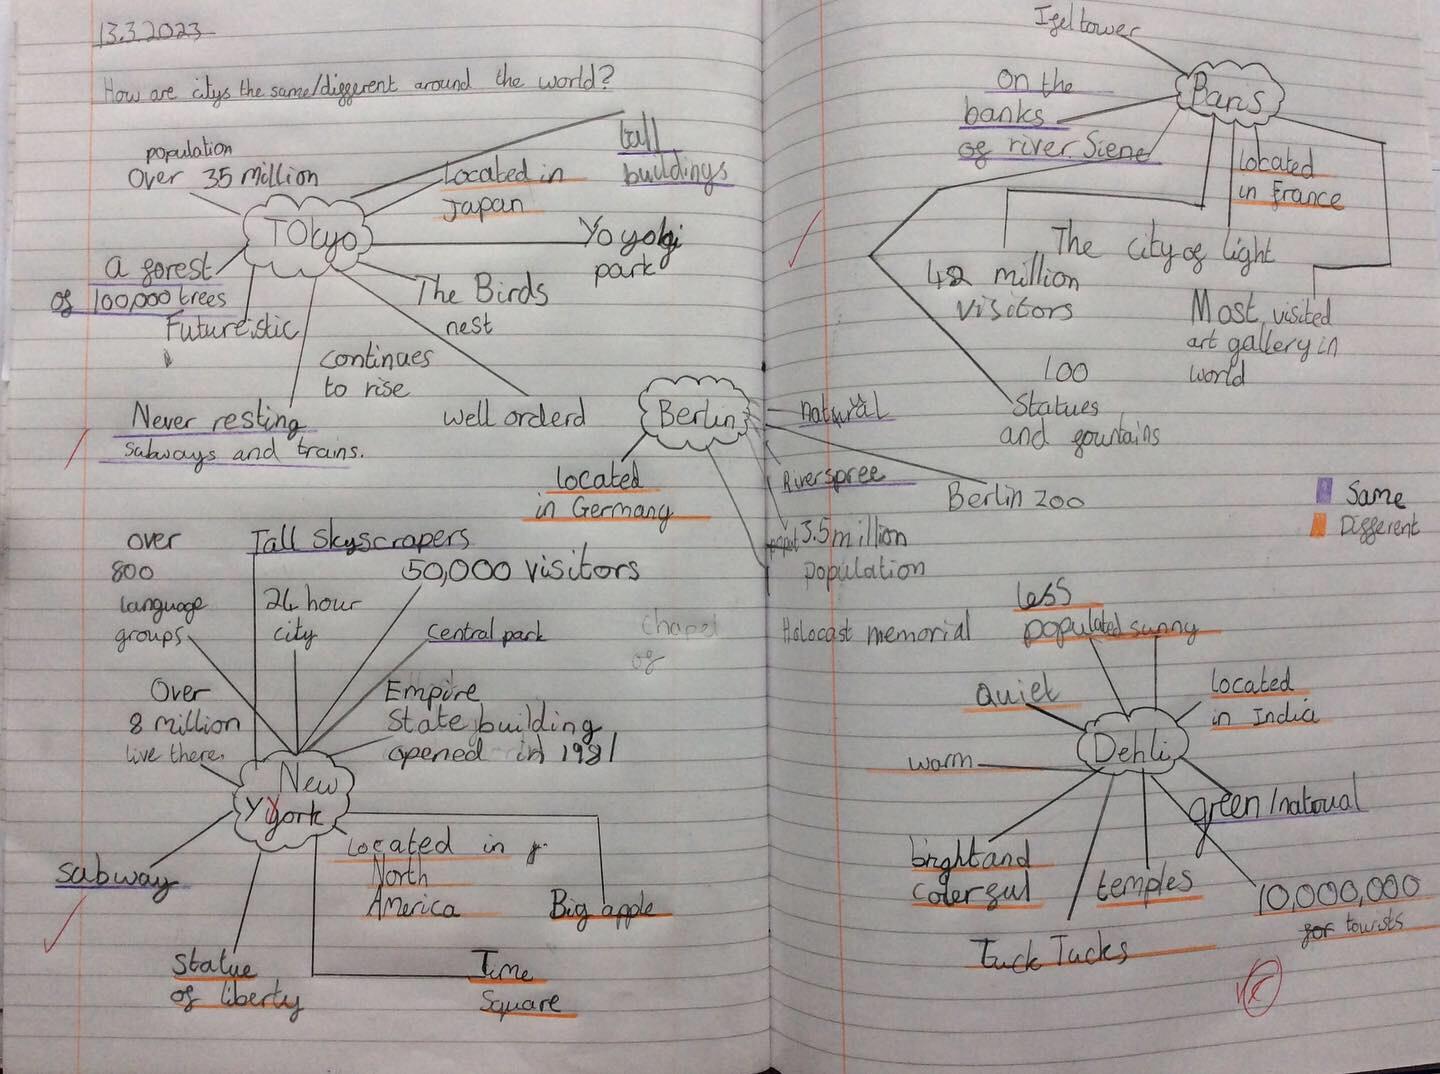 13.3.2023
How are citys the same/different around the world?
population
Over 35 million
Located in
Japan
tall
buildings
TOkyo
Yoyogi
park
a forest
of 100,000 trees
Futureistic
The Birds
nest
continues
to rise
Never resting
subways and trains.
well orderd
Berlin
located
in Germany
natural
River spree
Berlin zoo
3.5 million
population
Holocast memorial
chapel
of
over
800
language
groups
Tall Skyscrapers
24 hour
city
50,000 visitors
Central park
Over
8 million
live there.
Empire
State building
opened in 1931
New
York
subway
Located in
North
America
Big apple
Statue
of liberty
Time
Square
Ifel tower
Paris
on the
banks
of river Siene
located
in France
The city of light
42 million
visitors
Most visited
art gallery in
world
100
Statues
and fountains
Same
Different
less
populated sunny
quiet
located
in India
Dehli
warm
green/natoual
bright and
colerful
temples
10,000,000
for tourists
Tuck Tucks